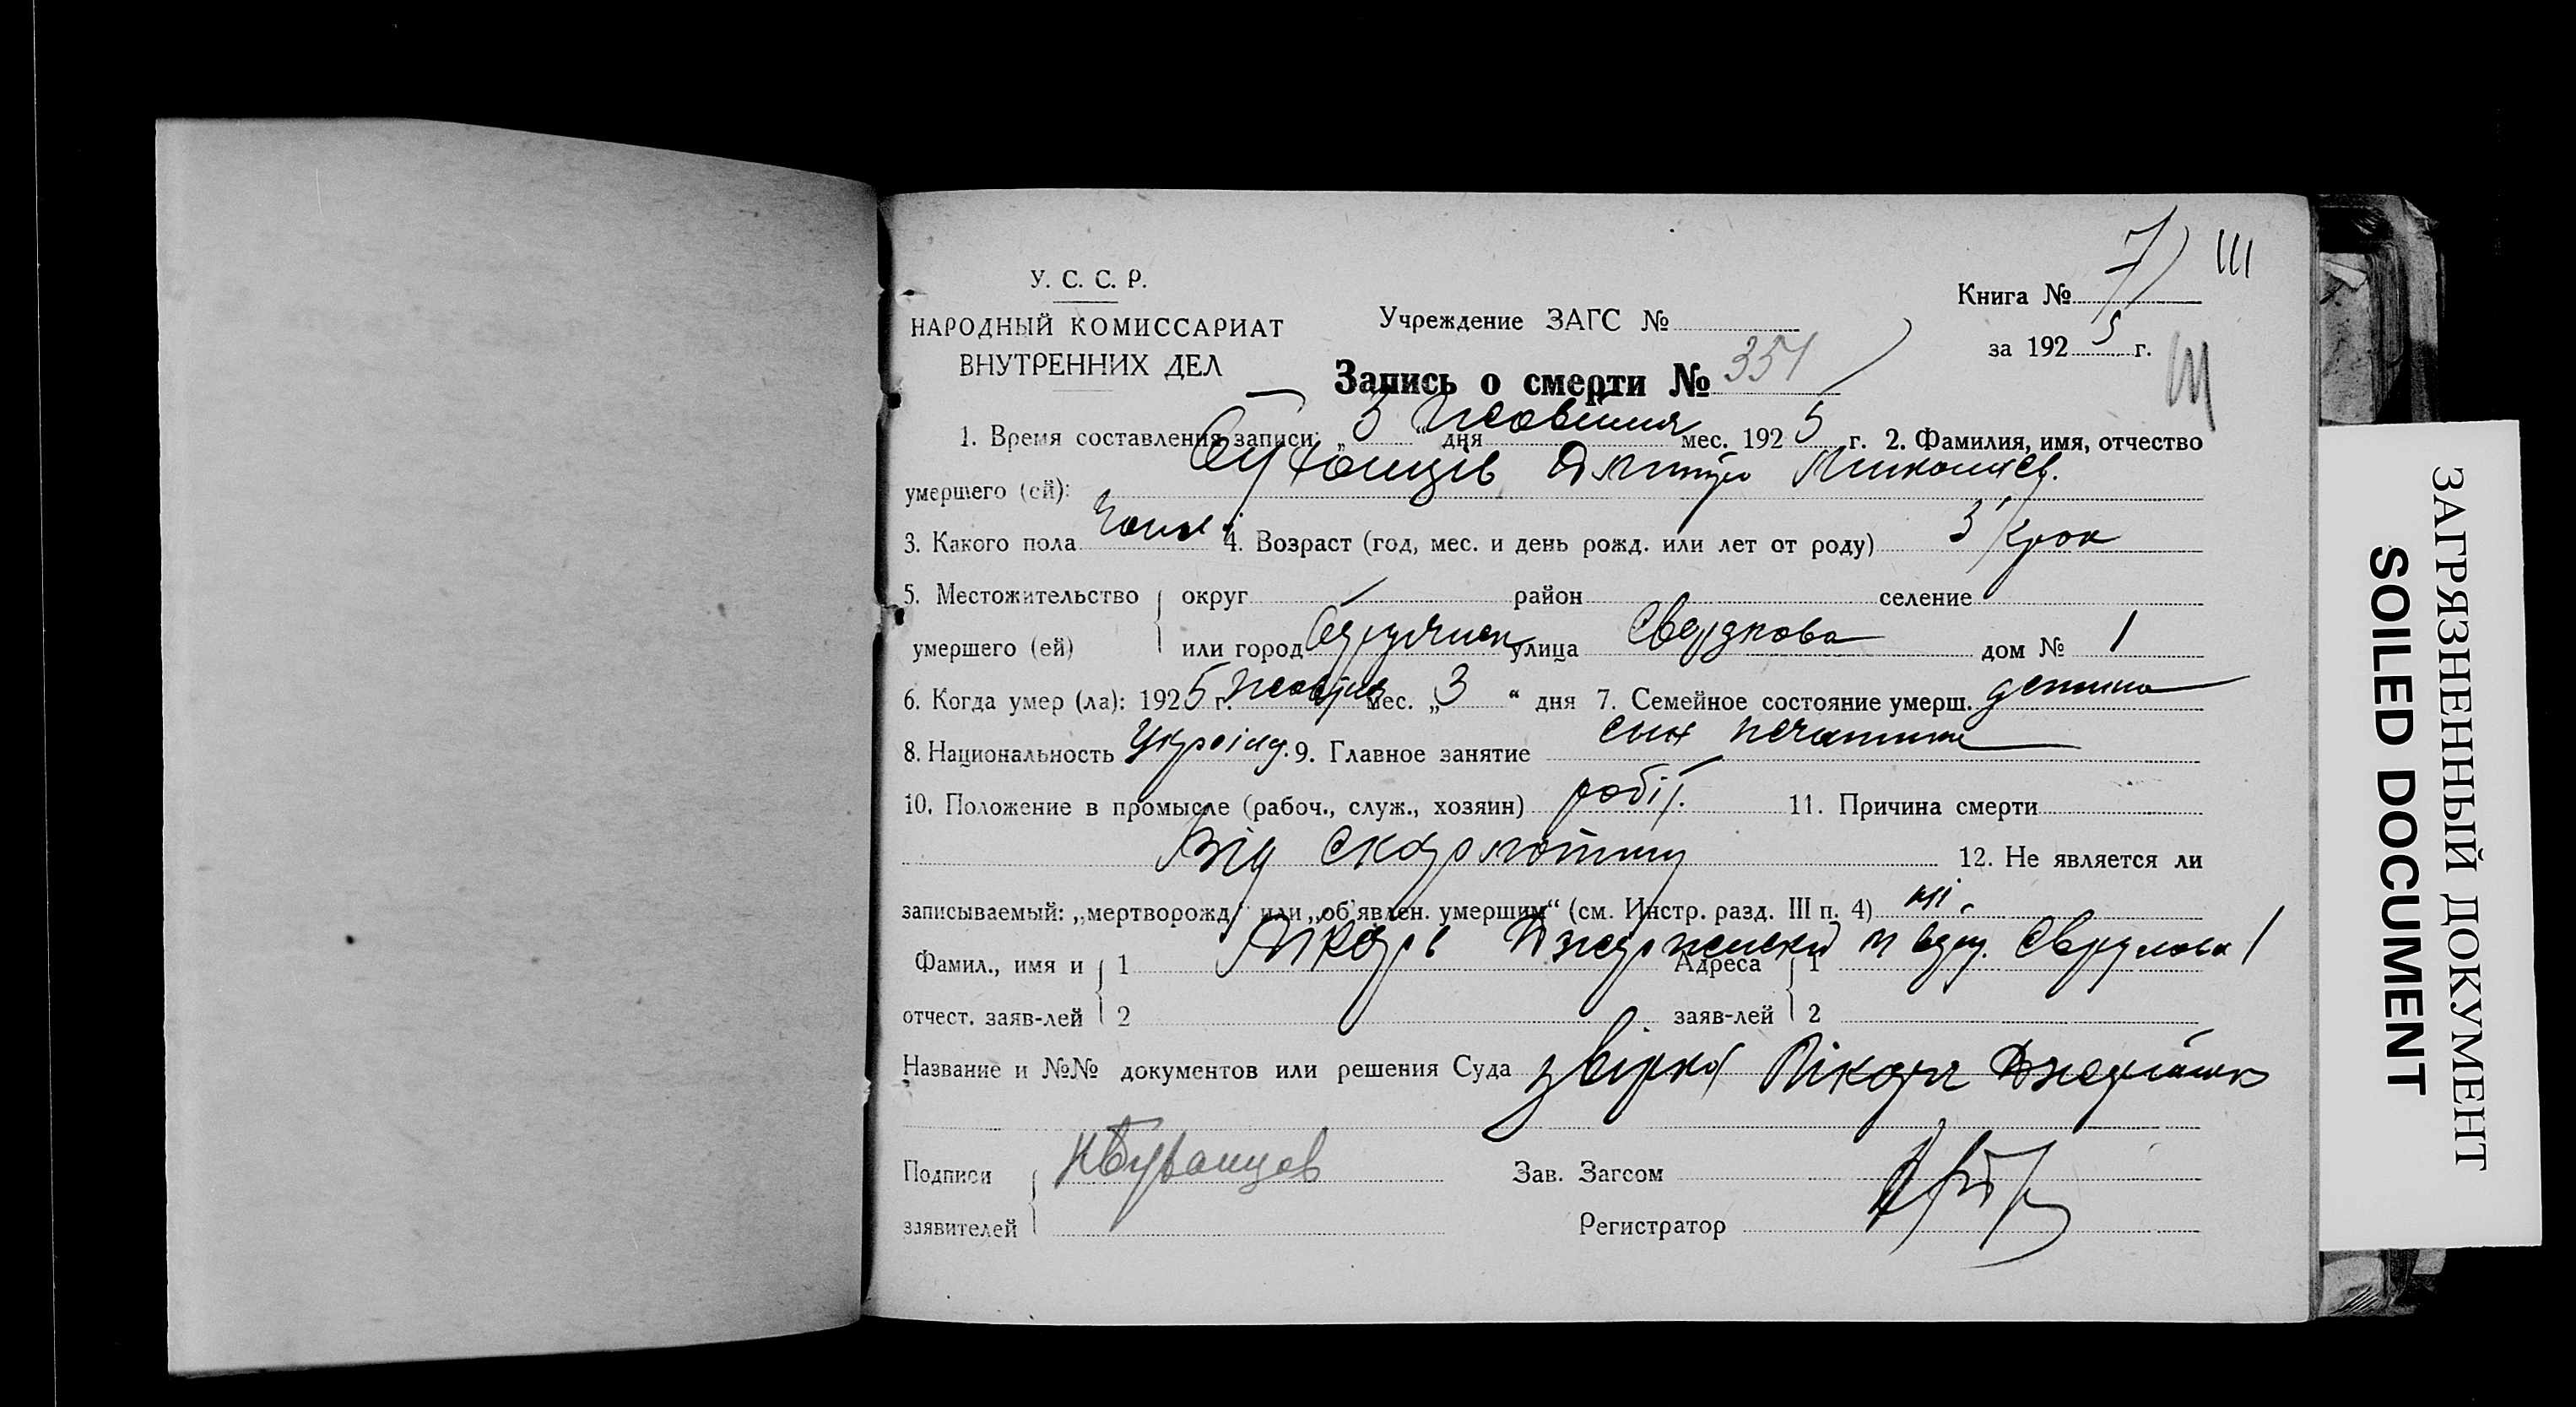 7) III
У. С. С. Р.
НАРОДНЫЙ КОМИССАРИАТ
ВНУТРЕННИХ ДЕЛ
Учреждение ЗАГС №
Книга №
за 1925 г.
Запись о смерти № 351
1. Время составления записи: „5“ дня Жовтня мес. 1925 г. 2. Фамилия, имя, отчество
умершего (ей): Дмитро Миколаєв.
3. Какого пола чолов 4. Возраст (год, мес. и день рожд. или лет от роду) 3
5. Местожительство округ район селение
умершего (ей) или город улица Свердлова дом № 1
6. Когда умер (ла): 1925 г. Жовтня мес. „3“ дня 7. Семейное состояние умерш. детина
8. Национальность Україн. 9. Главное занятие син
10. Положение в промысле (рабоч., служ., хозяин) робіт. 11. Причина смерти
Від Скарлатини 12. Не является ли
записываемый: „мертворожд.“ или „об'явлен. умершим“ (см. Инстр. разд. III п. 4) ні.
Фамил., имя и 1 Лікарь Адреса 1 Свердлова 1
отчест. заяв-лей 2 заяв-лей 2
Название и №№ документов или решения Суда Лікаря
Подписи Зав. Загсом
заявителей Регистратор
ЗАГРЯЗНЕННЫЙ ДОКУМЕНТ
SOILED DOCUMENT